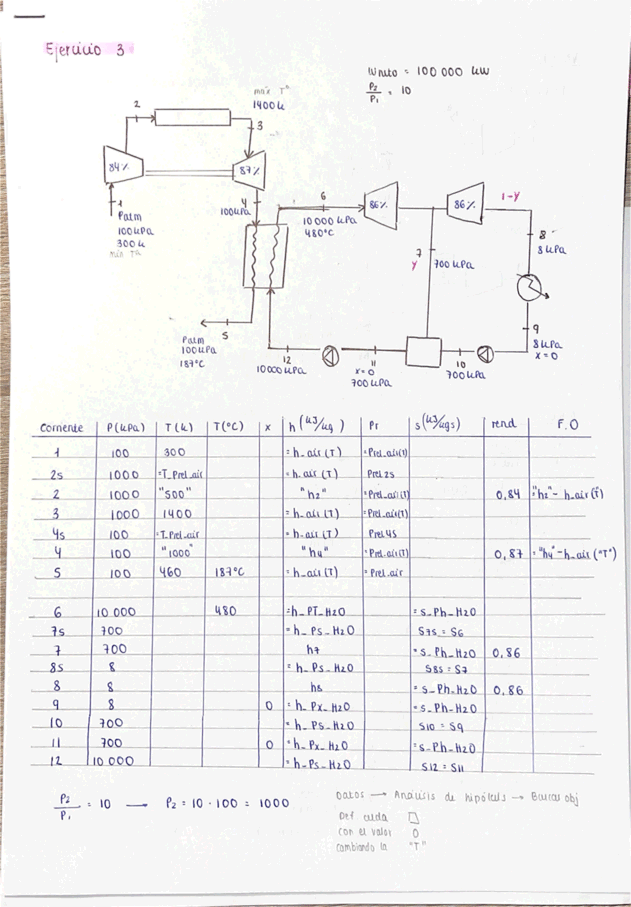 Ejercicio 3
Wneto = 100 000 kW
P2/P1 = 10
max Tª
1400k
2
3
84%
87%
1
Patm
100kPa
300k
min Tª
4
100kPa
6
10 000 kPa
480°C
86%
86%
1-Y
7
Y
700 kPa
8
8kPa
9
8kPa
x=0
5
Patm
100kPa
187°C
12
10000kPa
11
x=0
700 kPa
10
700kPa
Corriente P(kPa) T(k) T(°C) x h(kJ/kg) Pr s(kJ/kgs) rend F.O
1 100 300 =h_air(T) =Prel_air(T)
2s 1000 =T_Prel_air =h_air(T) Prel2s
2 1000 "500" "h2" =Prel_air(T) 0,84 ="h2"-h_air(T)
3 1000 1400 =h_air(T) =Prel_air(T)
4s 100 =T_Prel_air =h_air(T) Prel4s
4 100 "1000" "h4" =Prel_air(T) 0,87 ="h4"-h_air("T")
5 100 460 187°C =h_air(T) =Prel_air
6 10 000 480 =h_PT_H2O =s_Ph_H2O
7s 700 =h_Ps_H2O S7s=S6
7 700 h7 =s_Ph_H2O 0,86
8s 8 =h_Ps_H2O S8s=S7
8 8 h8 =s_Ph_H2O 0,86
9 8 0 =h_Px_H2O =s_Ph_H2O
10 700 =h_Ps_H2O S10=S9
11 700 0 =h_Px_H2O =s_Ph_H2O
12 10 000 =h_Ps_H2O S12=S11
P2/P1 = 10 → P2 = 10 · 100 = 1000
Datos → Analisis de hipótesis → Buscar obj
Def celda
con el valor 0
cambiando la "T"